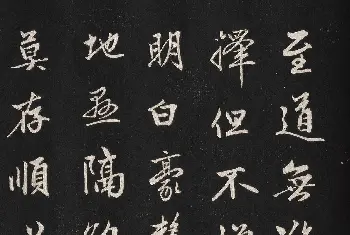 至道無
擇但不
明白豪
地懸隔
莫存順